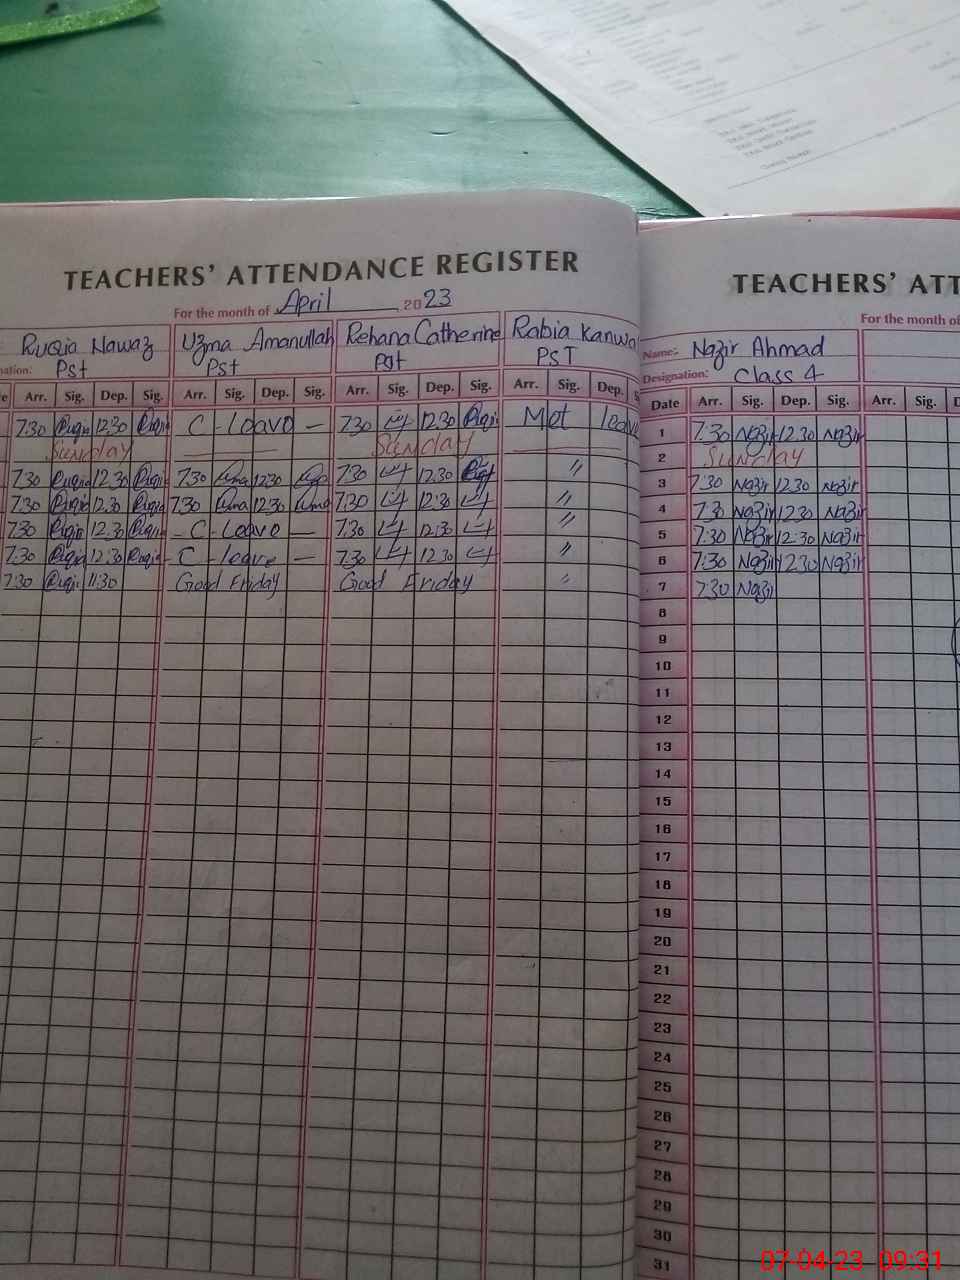 TEACHERS' ATTENDANCE REGISTER
For the month of April 2023
Ruqia Nawaz Uzma Amanullah Rehana Catherine Rabia Kanwa
nation: Pst Pst Pst PST
Arr. Sig. Dep. Sig. Arr. Sig. Dep. Sig. Arr. Sig. Dep. Sig. Arr. Sig. Dep.
7:30 Ruqia 12:30 Ruqia C - Leave - 7:30 12:30 Met leave
Sunday Sunday
7:30 Ruqia 12:30 Ruqia 7:30 Uma 12:30 7:30 12:30 "
7:30 Ruqia 12:30 Ruqia 7:30 Uma 12:30 Uma 7:30 12:30 "
7:30 Ruqia 12:30 Ruqia - C - Leave - 7:30 12:30 "
7:30 Ruqia 12:30 Ruqia - C - leave - 7:30 12:30 "
7:30 Ruqi 11:30 Good Friday Good Friday "
TEACHERS' ATT
For the month of
Name:- Nazir Ahmad
Designation: Class 4
Date Arr. Sig. Dep. Sig. Arr. Sig. D
1 7:30 Nazir 12:30 Nazir
2 Sunday
3 7:30 Nazir 12:30 Nazir
4 7:30 Nazir 12:30 Nazir
5 7:30 Nazir 12:30 Nazir
6 7:30 Nazir 12:30 Nazir
7 7:30 Nazir
8
9
10
11
12
13
14
15
16
17
18
19
20
21
22
23
24
25
26
27
28
29
30
31
07-04-23 09:31